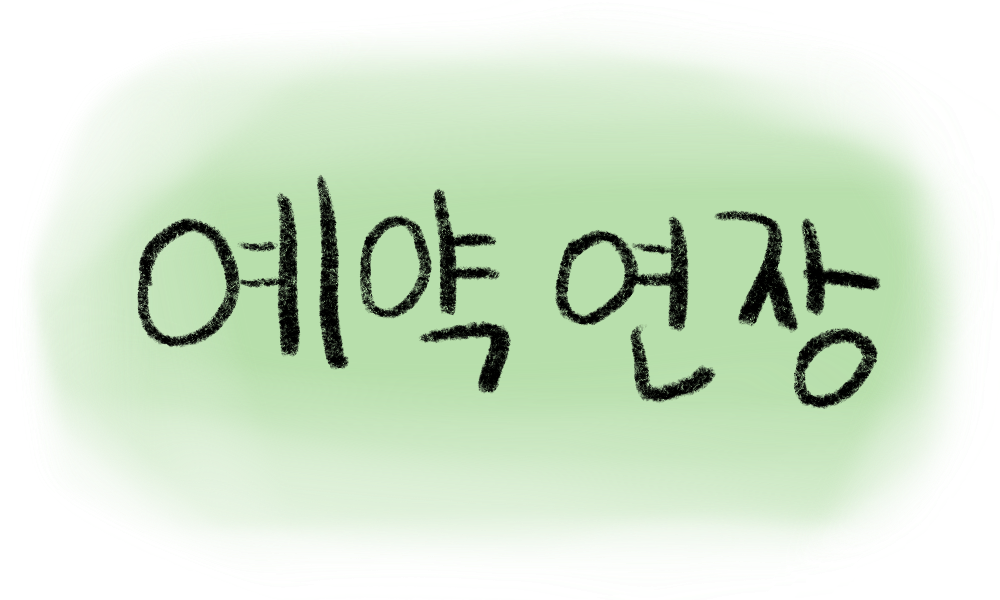 예약 연장